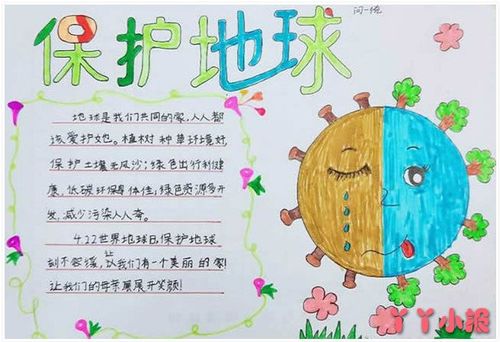 保护地球
闫一统
地球是我们共同的家,人人都
该爱护她。植树种草环境好,
保护土壤无风沙;绿色出行利健
康,低碳环保身体佳;绿色资源多开
发,减少污染人人夸。
4.22世界地球日,保护地球
刻不容缓,让以我们有一个美丽的家!
让我们的母亲展展开笑颜!
丫丫小报